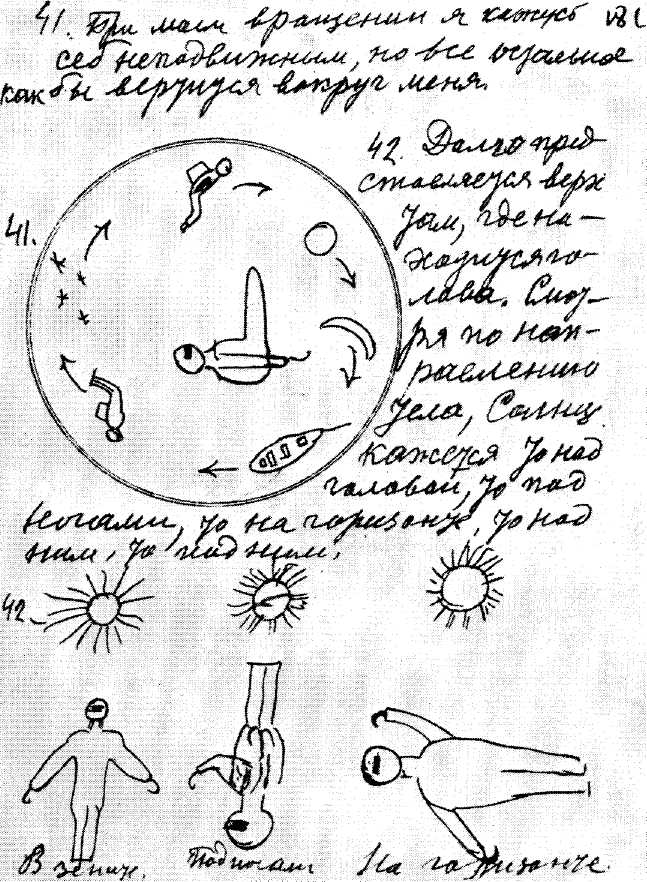 41. При моем вращении я кажусь
себе неподвижным, но все остальное
как бы вертится вокруг меня.
42. Далго пред-
ставляется верх
там, где на-
ходится го-
лова. Смот-
ря по нап-
равлению
тела, Солнце
кажется то над
головой, то под
41.
ногами, то на горизонте, то над
ним, то под ним.
42.
В зените.
Под ногами
На горизонте.